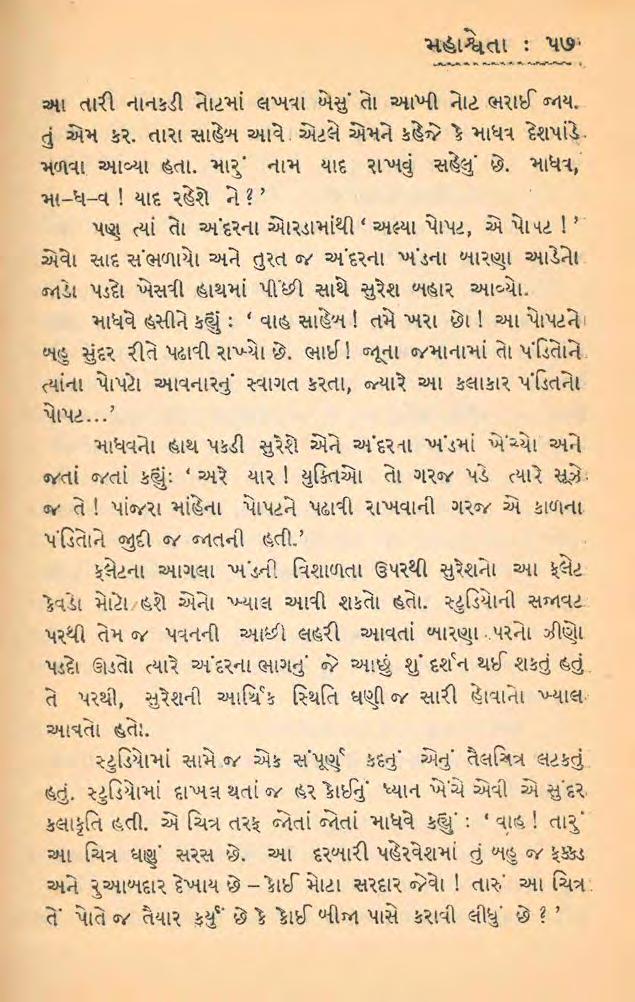 મહાશ્વેતા : ૫૭
આ તારી નાનકડી નોટમાં લખવા બેસું તો આખી નોટ ભરાઈ જાય.
તું એમ કર. તારા સાહેબ આવે એટલે એમને કહેજે કે માધવ દેશપાંડે
મળવા આવ્યા હતા. મારું નામ યાદ રાખવું સહેલું છે. માધવ,
મા–ધ–વ ! યાદ રહેશે ને ? ’
પણ ત્યાં તો અંદરના ઓરડામાંથી ‘ અલ્યા પોપટ, એ પોપટ ! ’
એવો સાદ સંભળાયો અને તુરત જ અંદરના ખંડના બારણા આડેનો
જાડો પડદો ખેસવી હાથમાં પીંછી સાથે સુરેશ બહાર આવ્યો.
માધવે હસીને કહ્યું : ‘ વાહ સાહેબ ! તમે ખરા છો ! આ પોપટને
બહુ સુંદર રીતે પઢાવી રાખ્યો છે. ભાઈ ! જૂના જમાનામાં તો પંડિતોને
ત્યાંના પોપટો આવનારનું સ્વાગત કરતા, જ્યારે આ કલાકાર પંડિતનો
પોપટ...’
માધવનો હાથ પકડી સુરેશે એને અંદરના ખંડમાં ખેંચ્યો અને
જતાં જતાં કહ્યું: ‘ અરે યાર ! યુક્તિઓ તો ગરજ પડે ત્યારે સૂઝે
જ તે ! પાંજરા માંહેના પોપટને પઢાવી રાખવાની ગરજ એ કાળના
પંડિતોને જુદી જ જાતની હતી.’
ફ્લેટના આગલા ખંડની વિશાળતા ઉપરથી સુરેશનો આ ફ્લેટ
કેવડો મોટો હશે એનો ખ્યાલ આવી શકતો હતો. સ્ટુડિયોની સજાવટ
પરથી તેમ જ પવનની આછી લહરી આવતાં બારણા પરનો ઝીણો
પડદો ઊડતો ત્યારે અંદરના ભાગનું જે આછું શું દર્શન થઈ શકતું હતું
તે પરથી, સુરેશની આર્થિક સ્થિતિ ઘણી જ સારી હોવાનો ખ્યાલ
આવતો હતો.
સ્ટુડિયોમાં સામે જ એક સંપૂર્ણ કદનું એનું તૈલચિત્ર લટકતું
હતું. સ્ટુડિયોમાં દાખલ થતાં જ હર કોઈનું ધ્યાન ખેંચે એવી એ સુંદર
કલાકૃતિ હતી. એ ચિત્ર તરફ જોતાં જોતાં માધવે કહ્યું : ‘ વાહ ! તારું
આ ચિત્ર ઘણું સરસ છે. આ દરબારી પહેરવેશમાં તું બહુ જ ફક્કડ
અને રુઆબદાર દેખાય છે – કોઈ મોટા સરદાર જેવો ! તારું આ ચિત્ર
તેં પોતે જ તૈયાર કર્યું છે કે કોઈ બીજા પાસે કરાવી લીધું છે ? ’